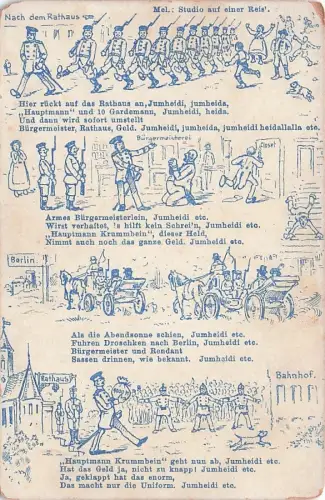 Nach dem Rathaus
Mel.: Studio auf einer Reis'.
Hier rückt auf das Rathaus an, Jumheidi, jumheida,
„Hauptmann" und 10 Gardemann, Jumheidi, heida.
Und dann wird sofort umstellt
Bürgermeister, Rathaus, Geld. Jumheidi, jumheida, jumheidi heidallalla etc.
Bürgermeisterei
Armes Bürgermeisterlein, Jumheidi etc.
Wirst verhaftet, 's hilft kein Schrei'n, Jumheidi etc.
„Hauptmann Krummbein", dieser Held,
Nimmt auch noch das ganze Geld. Jumheidi etc.
Berlin
Als die Abendsonne schien, Jumheidi etc.
Fuhren Droschken nach Berlin, Jumheidi etc.
Bürgermeister und Rendant
Sassen drinnen, wie bekannt. Jumheidi etc.
Rathaus
Bahnhof.
„Hauptmann Krummbein" geht nun ab, Jumheidi etc.
Hat das Geld ja, nicht zu knapp! Jumheidi etc.
Ja, geklappt hat das enorm,
Das macht nur die Uniform. Jumheidi etc.